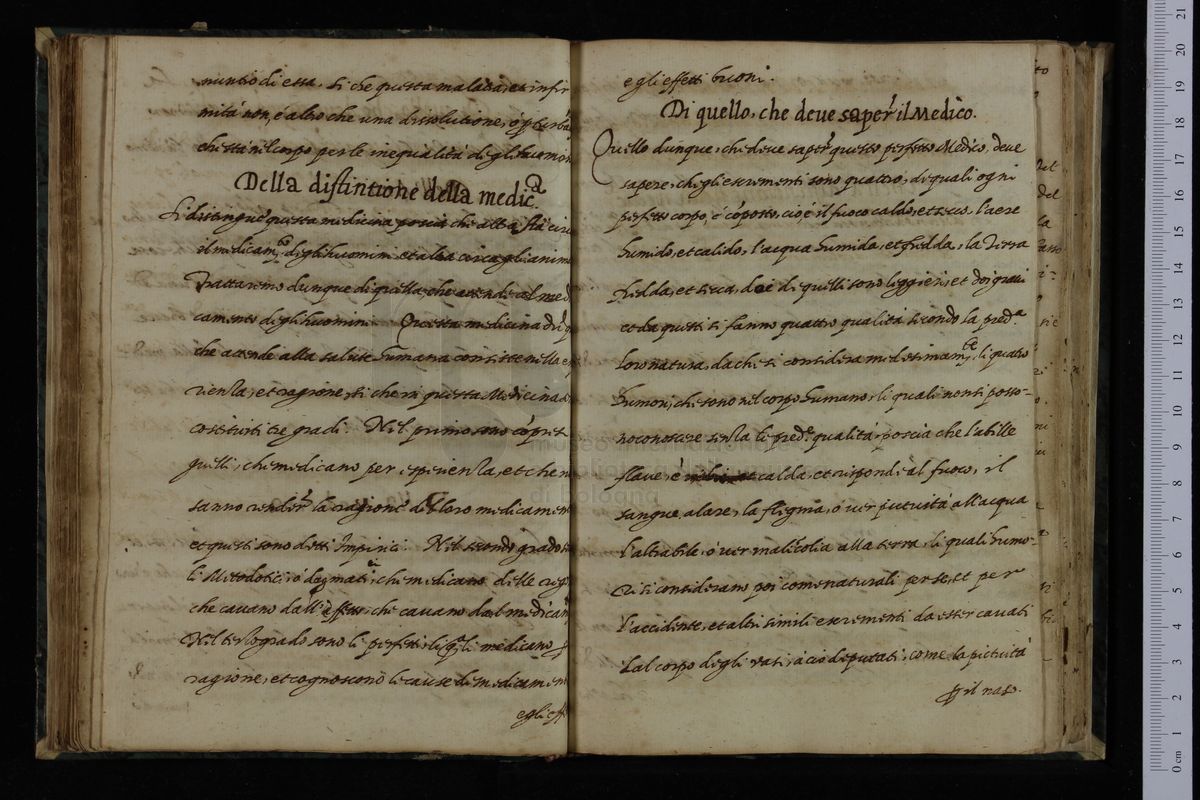 nuntio di essa. si che questa malatia, et infir
mità non, é altro che una dissolutione, ó pturba
che stà nel corpo per le inequalità degli huomin
Della distintione della medica
Si distingue questa medicina poscia che altra stà circ
il medicamto degli huomini et altra circa gli anim
Trattaremo dunque di quella, che attende al med
camento degli huomini. Questa medicina
che attende alla salute humana consiste nella
rienza, et ragione, si che in questa Medicina
costituiti tre gradi. Nel primo sono
quelli, che medicano per esperienza, et che n
sanno render la ragione de loro medicamen
et questi sono detti Impirici. Nel secondo grado
li Metodotici, ó dogmatici, che medicano delle
che cavano dall' effetto, che cavano dal medicam
Nel terzo grado sono li perfetti, medicano
ragione, et cognoscono le cause de medicamen
egli eff
egli effetti buoni.
Di quello, che deve saper il Medico.
Quello dunque, che deve saper questo perfetto Medico, deve
sapere, che gli escrementi sono quattro, di quali ogni
perfetto corpo, é cóposto, cioè il fuoco caldo, et secco, l'aere
humido, et calido, l'acqua humida, et fredda, la Terra
fredda, et secca, doi di quelli sono leggieri, et doi gravi
et da questi si fanno quattro qualità secondo la preda
loro natura, da che si considera medesimamte li quatro
humori, che sono nel corpo humano, li quali non si posso-
no conoscere senza le prede qualità, poscia che l'abille
flave, é calda, et risponde al fuoco, il
sangue, alare, la flegma, o ver pituità all'acqua
l'altrabile, ó ver malécolia alla terra, li quali humo-
ri si considerano poi come naturali per se, et per
l'accidente, et altri simili escrementi da esser cavati
dal corpo degli vasi, a ció deputati, come la pituità
p il naso.
museo internazionale
di bologna